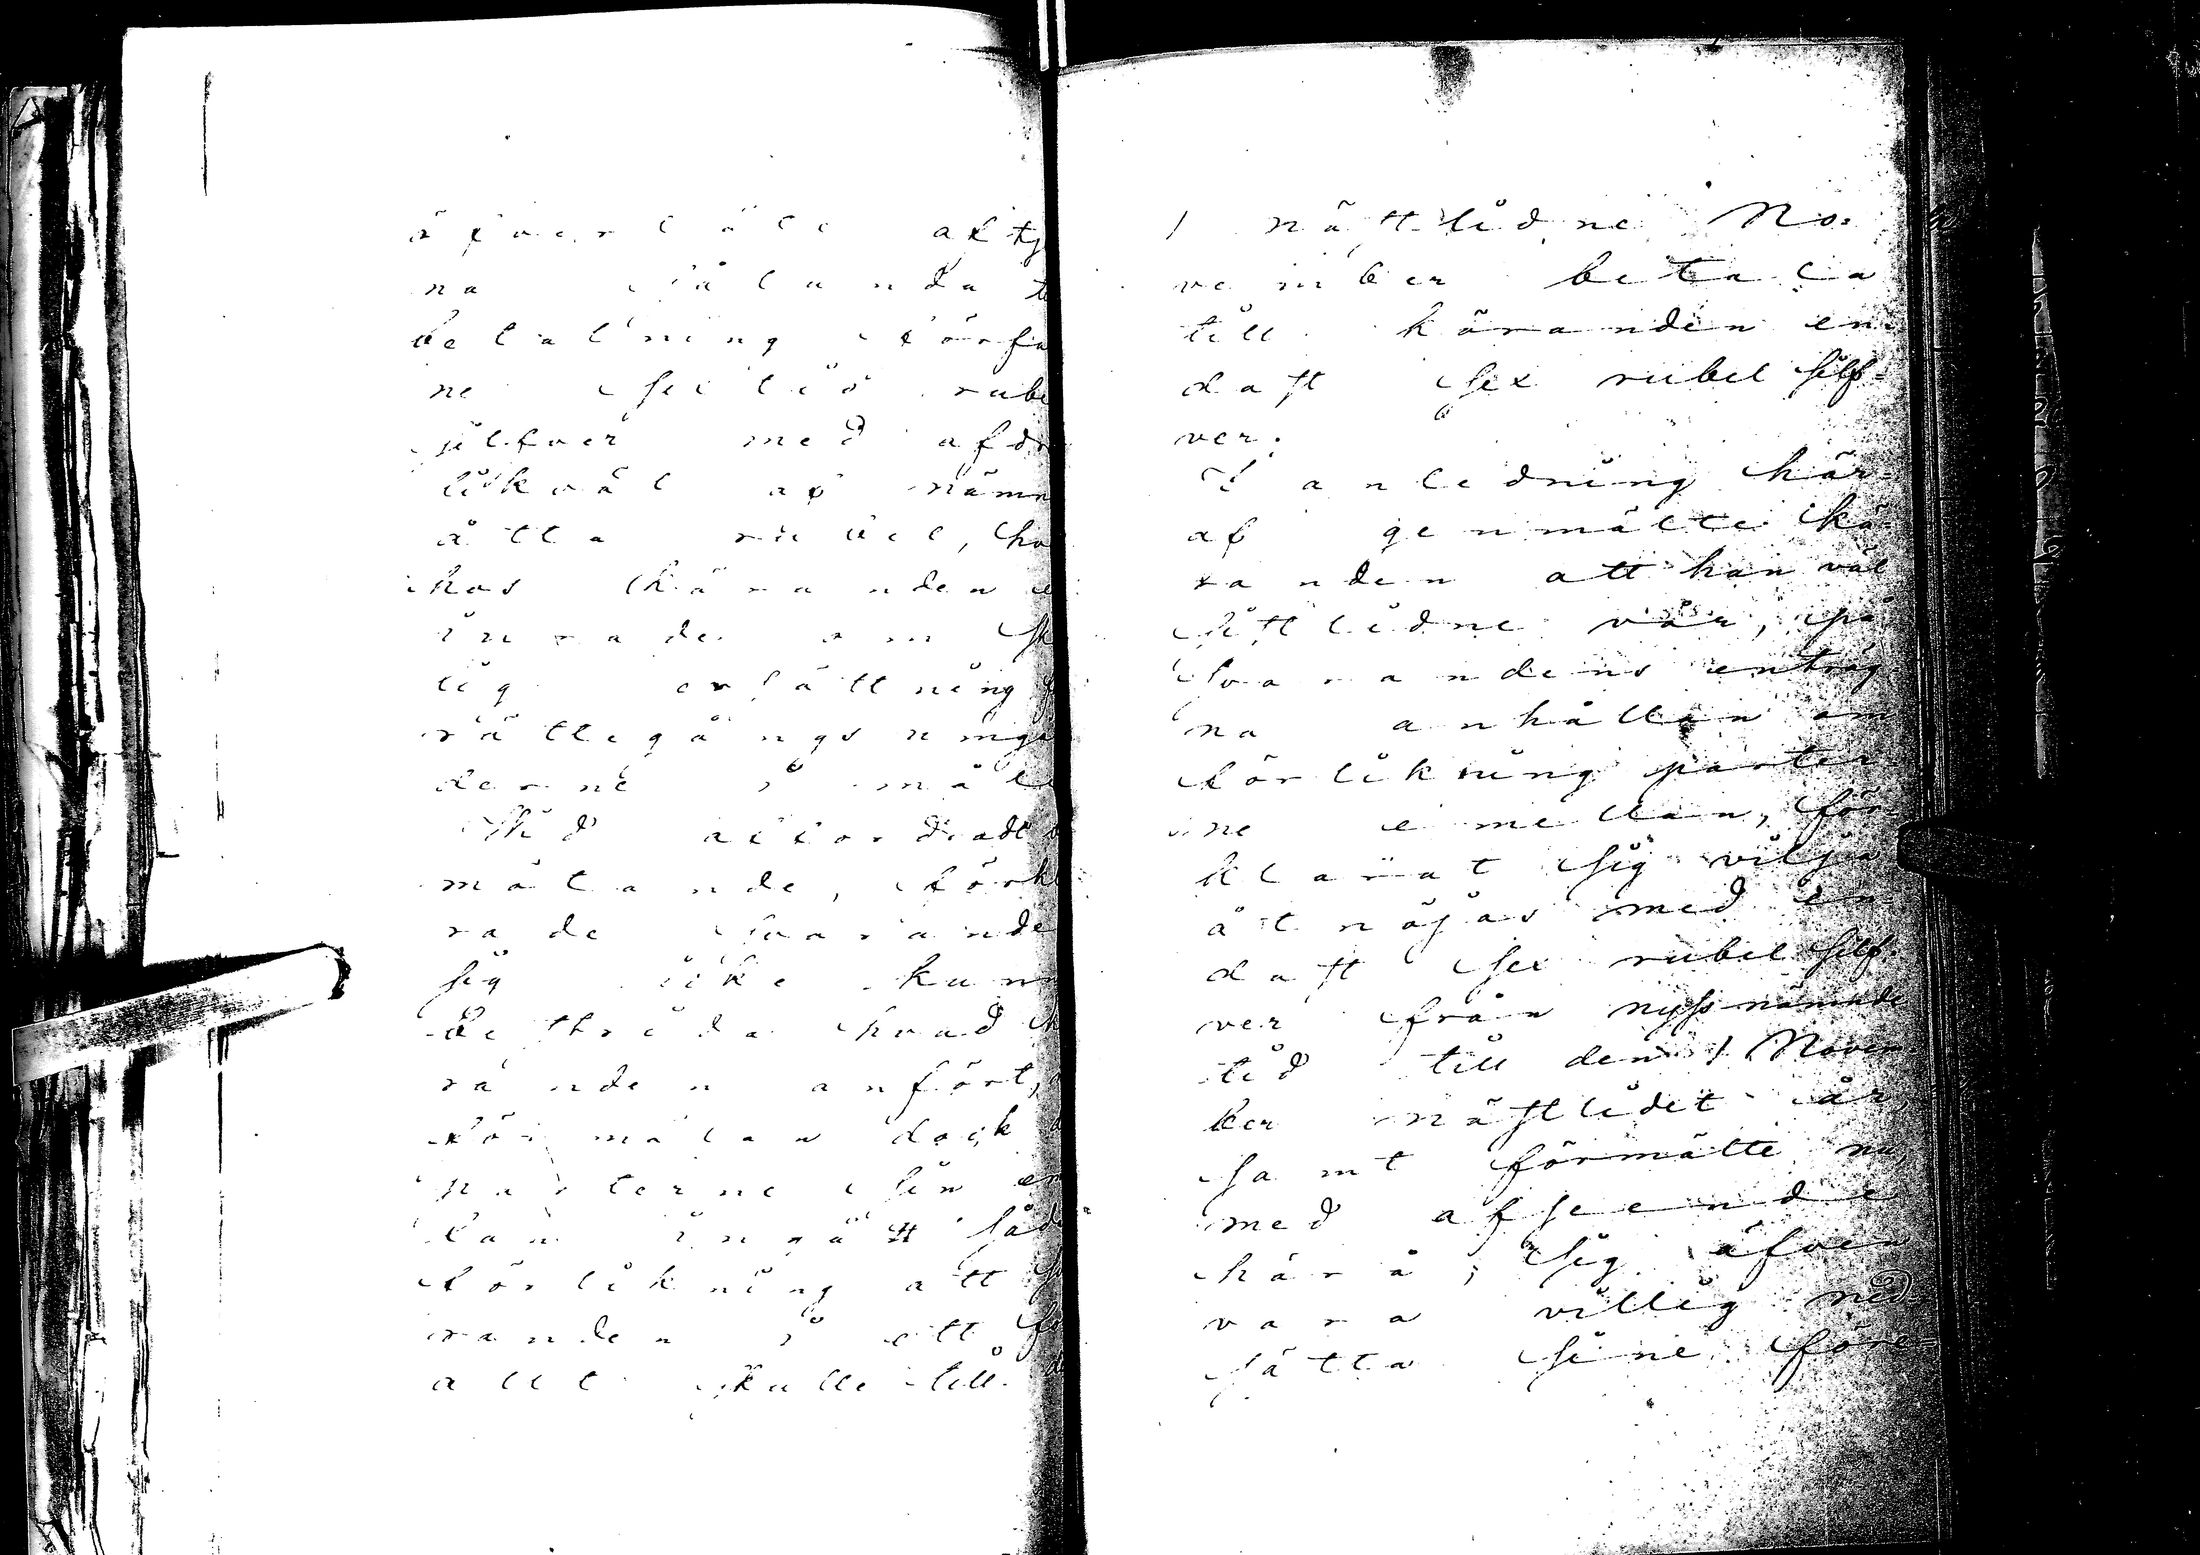 öfverlåte aftj
na sålunda t
betalning förfa
ne sextiö rube
silfver med afdr
likväl af nämn
åtta rubel, hva
hos käranden
yrkade om sk
lig ersättning f
rättegångs umgä
derne i måle
Vid ackordadt
målande, förkl
rade svarande
sig icke kun
bestrida hvad k
randen anfört,
förmälan dock
parterne sin em
lan ingått såd
förlikning att sv
randen i ett fö
allt skulle till d
1 nästlidne No-
vember betala
till käranden en-
dast sex rubel silf-
ver.
I anledning här-
af genmälte kä-
randen att han väl
sistlidne vår, på
svarandens enträg-
na anhållan om
förlikning parter-
ne emellan, för-
klarat sig vilja
åtnöjas med en-
dast sex rubel silf-
ver från nyssnämnde
tid till den 1 Novem-
ber nästlidet år,
samt förmälte nu,
med afseende
härå, sig äfven
vara villig ned-
sätta sine före-